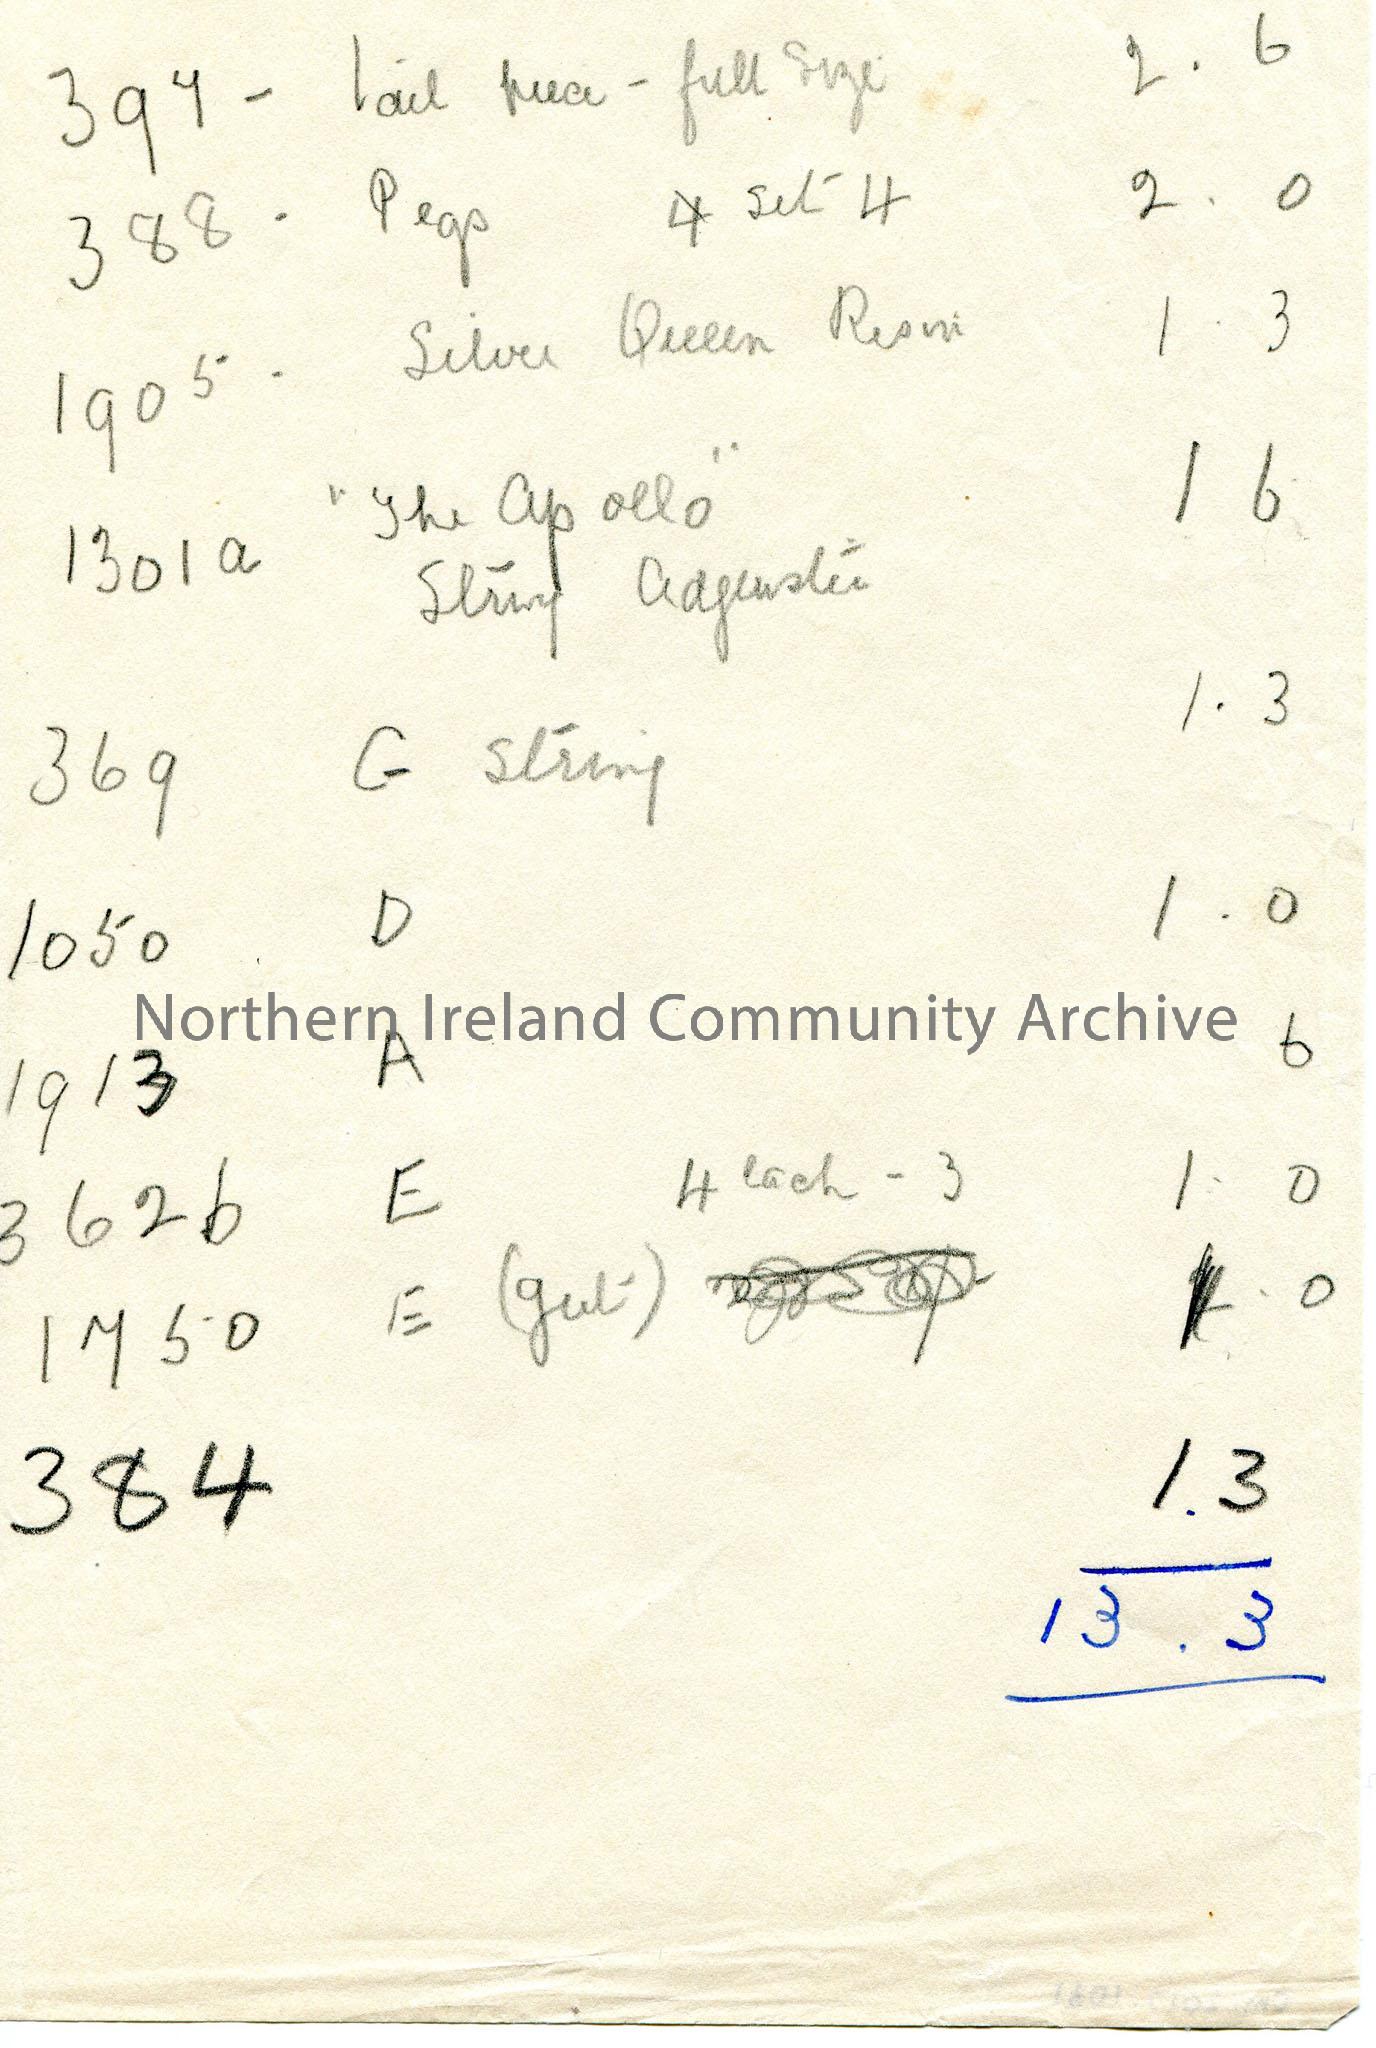 394 - tail piece - full size 2 . 6
388 - Pegs 4 set 4 2 . 0
1905 - Silver Queen Resin 1 . 3
1301a "The Apollo" 1 6
String Adjuster
369 G String 1 . 3
1050 D 1 . 0
Northern Ireland Community Archive
1913 A 6
362b E 4 each - 3 1 . 0
1750 E (gut) . 0
384 1 . 3
13 . 3